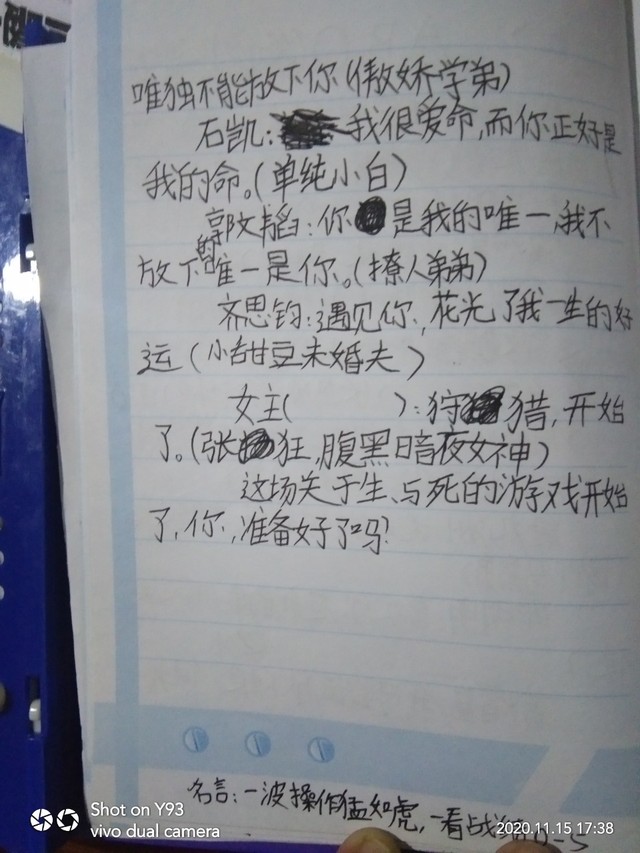 唯独不能放下你(傲娇学弟)
石凯:我很爱命,而你正好是
我的命。(单纯小白)
郭文韬:你是我的唯一,我不
放下的唯一是你。(撩人弟弟)
齐思钧:遇见你,花光了我一生的好
运(小甜豆未婚夫)
女主( ):狩猎,开始
了。(张狂,腹黑暗夜女神)
这场关于生、与死的游戏开始
了,你,准备好了吗?
名言:一波操作猛如虎,一看战绩0-5
Shot on Y93
vivo dual camera
2020.11.15 17:38